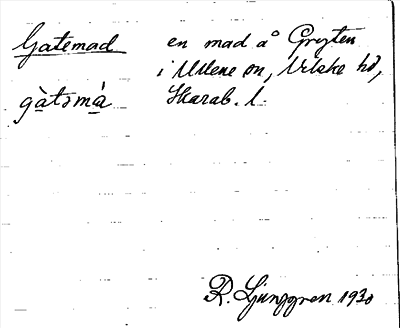 Gatemad en mad å Gryten
i Ullene sn, Vilske hd,
gàtəmá Skarab. l.
R. Ljunggren 1930